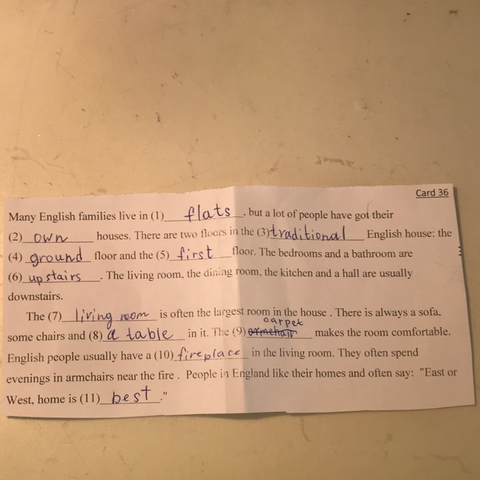 Card 36
Many English families live in (1) flats , but a lot of people have got their
(2) own houses. There are two floors in the (3) traditional English house: the
(4) ground floor and the (5) first floor. The bedrooms and a bathroom are
(6) upstairs . The living room, the dining room, the kitchen and a hall are usually
downstairs.
The (7) living room is often the largest room in the house . There is always a sofa,
carpet
some chairs and (8) a table in it. The (9) armchair makes the room comfortable.
English people usually have a (10) fireplace in the living room. They often spend
evenings in armchairs near the fire . People in England like their homes and often say: "East or
West, home is (11) best ."